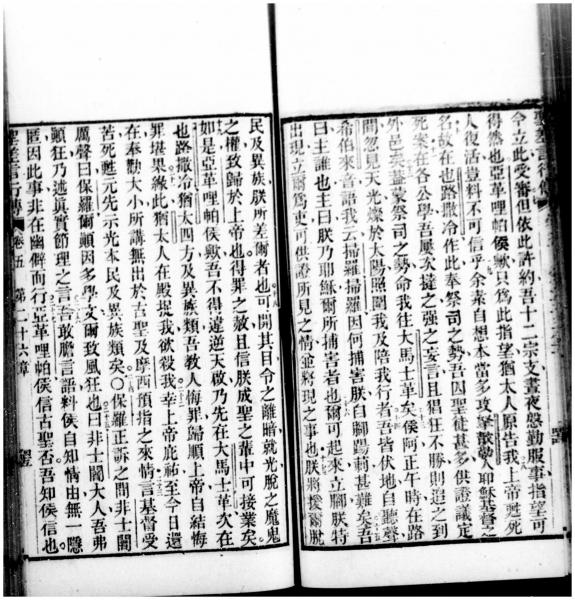 聖差言行傳
令立此受審但依此許約吾十二宗支晝夜慇勤服事指望可
得然也亞革哩帕侯歟只爲此指望猶太人原告我上帝甦死
人復活豈料不可信乎余素自想本當多攻擊人耶穌基督之
名故在也路撒冷作此奉祭司之勢吾囚聖徒甚多供證議定
死案在各公學吾屢次撻之强之妄言且猖狂不勝則迫之到
外邑矣蓋蒙祭司之勢命我往大馬士革矣侯阿正午時在路
間忽見天光燦於太陽照閣我及陪我行者吾皆伏地自聽聲
希伯來音語我云掃羅掃羅因何捕害朕自腳踢刺甚難矣吾
曰主誰也主曰朕乃耶穌爾所捕害者也爾可起來立腳朕特
出現立爾爲吏可供證所見之情並將現之事也朕將援爾脫
民及異族朕所差爾者也可開其目令之離暗就光脫之魔鬼
之權致歸於上帝也得罪之赦且信朕成聖之輩中可接業矣
如是亞革哩帕侯歟吾不得違逆天啟乃先在大馬士革次在
也路撒冷猶太四方及異族類吾教人悔罪歸順上帝自結悔
罪堪果緣此猶太人在殿捉我欲殺我幸上帝庇祐至今日還
在奉勸大小所講無出於古聖及摩西預指之來情言基督受
苦死甦元先示光本民及異族類矣〇保羅正訴之間非士闍
厲聲曰保羅爾顛因多學文爾致風狂也曰非士闍大人吾弗
顛狂乃述眞實節理之言吾敢膽言語料侯自知情由無一隱
匿因此事非在幽僻而行亞革哩帕侯信古聖否吾知侯信也
聖差言行傳 卷五 第二十六章